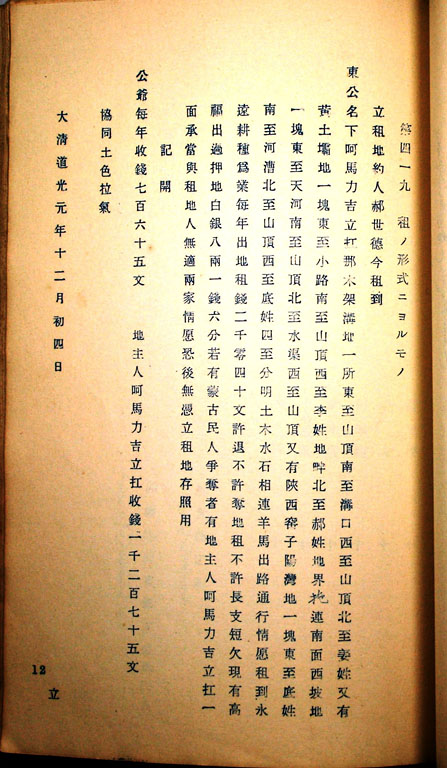 第四一九 租ノ形式ニヨルモノ
立租地約人郝世德今租到
東公名下呵馬力吉立扛那木架溝地一所東至山頂南至溝口西至山頂北至姜姓又有
黃土壩地一塊東至小路南至山頂西至李姓地畔北至郝姓地界拖連南面西坡地
一塊東至天河南至山頂北至水渠西至山頂又有陝西窰子陽灣地一塊東至底姓
南至河漕北至山頂西至底姓四至分明土木水石相連羊馬出路通行情愿租到永
遠耕種爲業每年出地租錢二千零四十文許退不許奪地租不許長支短欠現有高
福出過押地白銀八兩一錢六分若有蒙古民人爭奪者有地主人呵馬力吉立扛一
面承當與租地人無適兩家情愿恐後無憑立租地存照用
記開
公爺每年收錢七百六十五文 地主人呵馬力吉立扛收錢一千二百七十五文
協同土色拉氣
大清道光元年十二月初四日
立
12